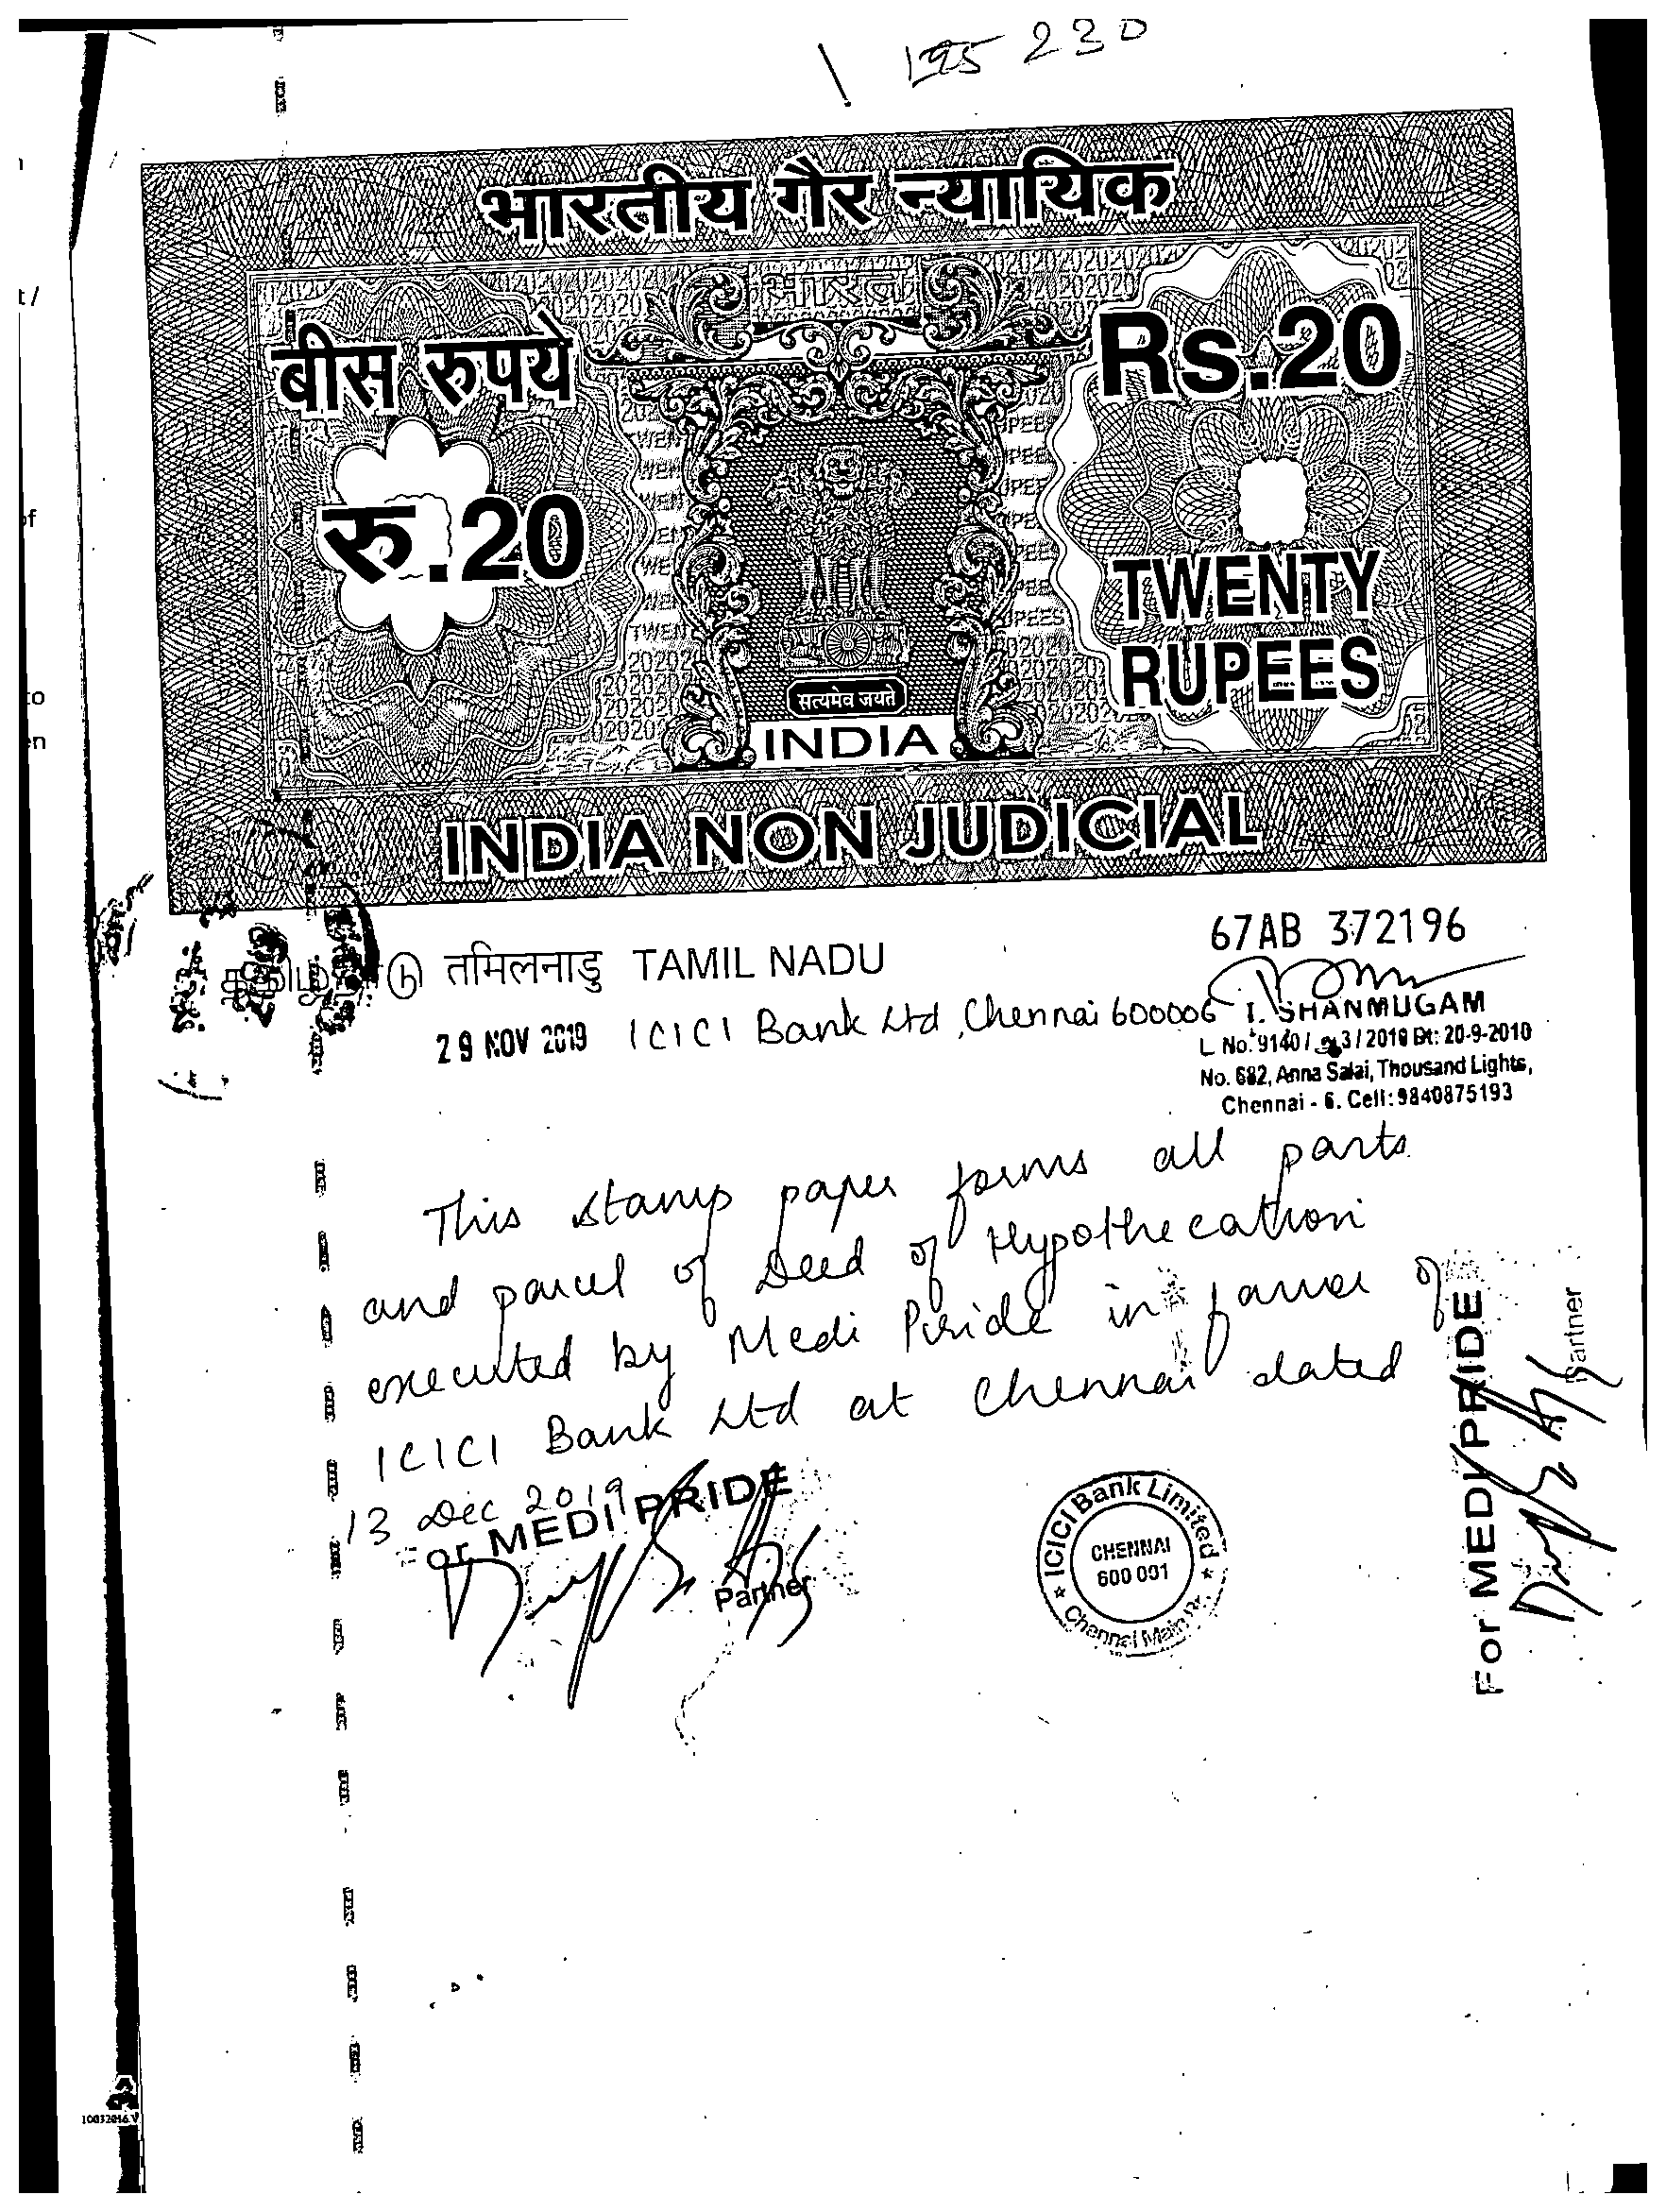 195 230
भारतीय गैर न्यायिक
भारत
बीस रुपये
Rs.20
रु.20
TWENTY
RUPEES
सत्यमेव जयते
INDIA
INDIA NON JUDICIAL
तमिलनाडु TAMIL NADU
67AB 372196
29 NOV 2019 ICICI Bank Ltd, Chennai 600006
I. SHANMUGAM
No. 682, Anna Salai, Thousand Lights,
Chennai - 6. Cell: 9840875193
This stamp paper forms all parts
and parcel of Deed of Hypothecation
executed by Medi Pride in favour of
ICICI Bank Ltd at Chennai dated
13 Dec 2019
or MEDI PRIDE
Partner
ICICI Bank Limited
CHENNAI
600 001
Chennai Main Br.
For MEDI PRIDE
Partner